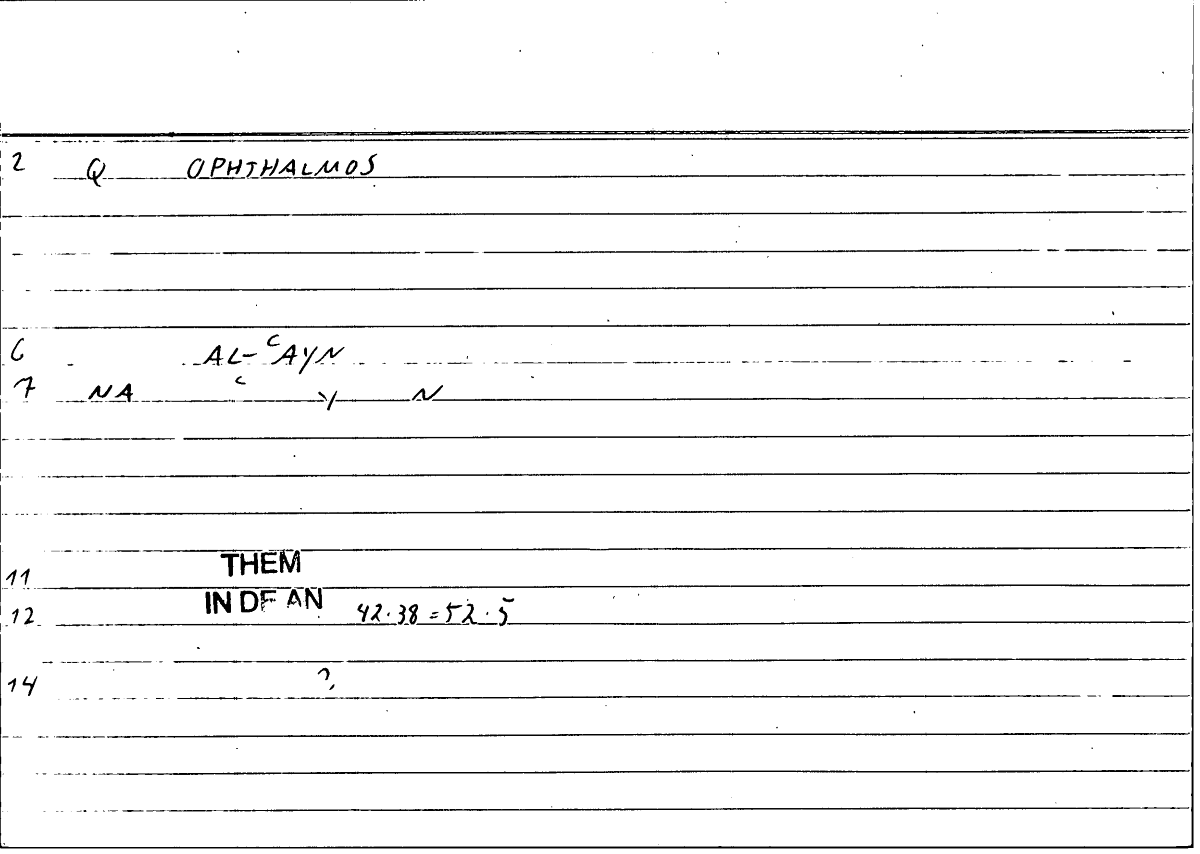 2 Q OPHTHALMOS
6 AL-ʿAYN
7 NA ʿ Y N
11 THEM
12 IN DE AN 42.38 = 52.5
14 ?